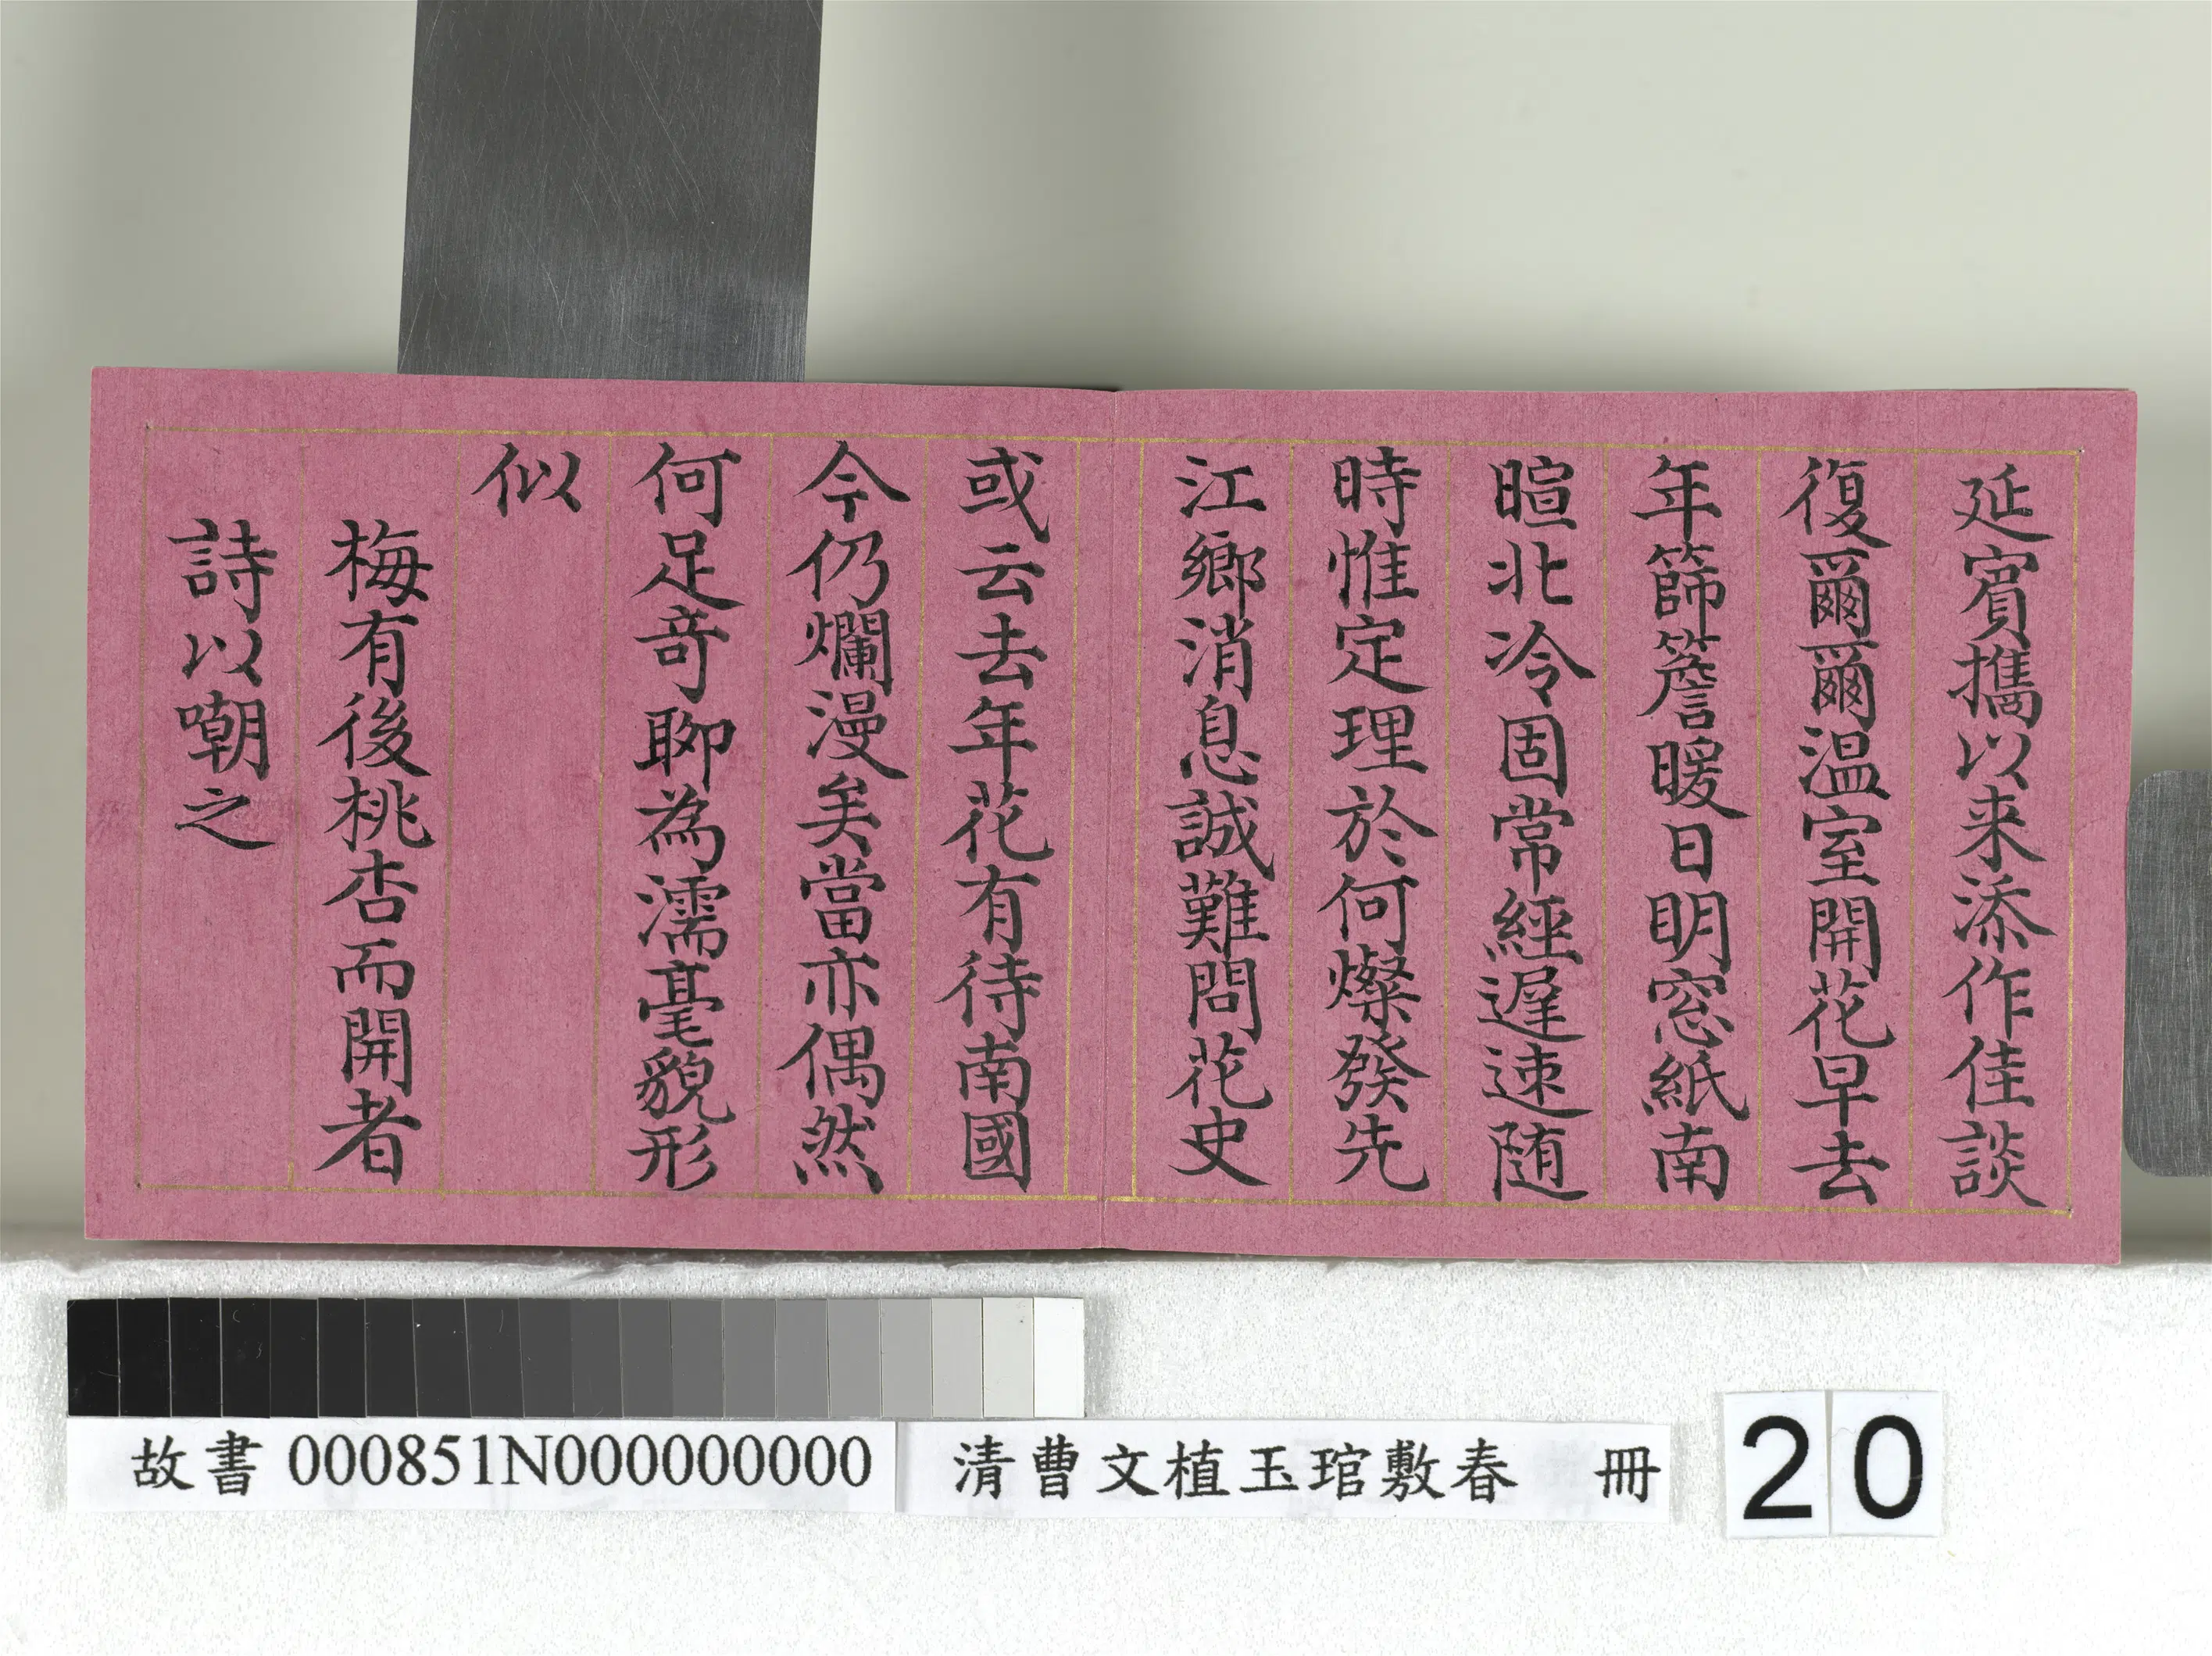 延賓攜以来添作佳談
復爾爾温室開花早去
年篩簷暖日明窓紙南
暄北冷固常經遲速随
時惟定理於何燦發先
江鄉消息誠難問花史
或云去年花有待南國
今仍爛漫矣當亦偶然
何足竒聊為濡毫貌形
似
梅有後桃杏而開者
詩以嘲之
故書 000851N000000000 清曹文植玉琯敷春 冊 20